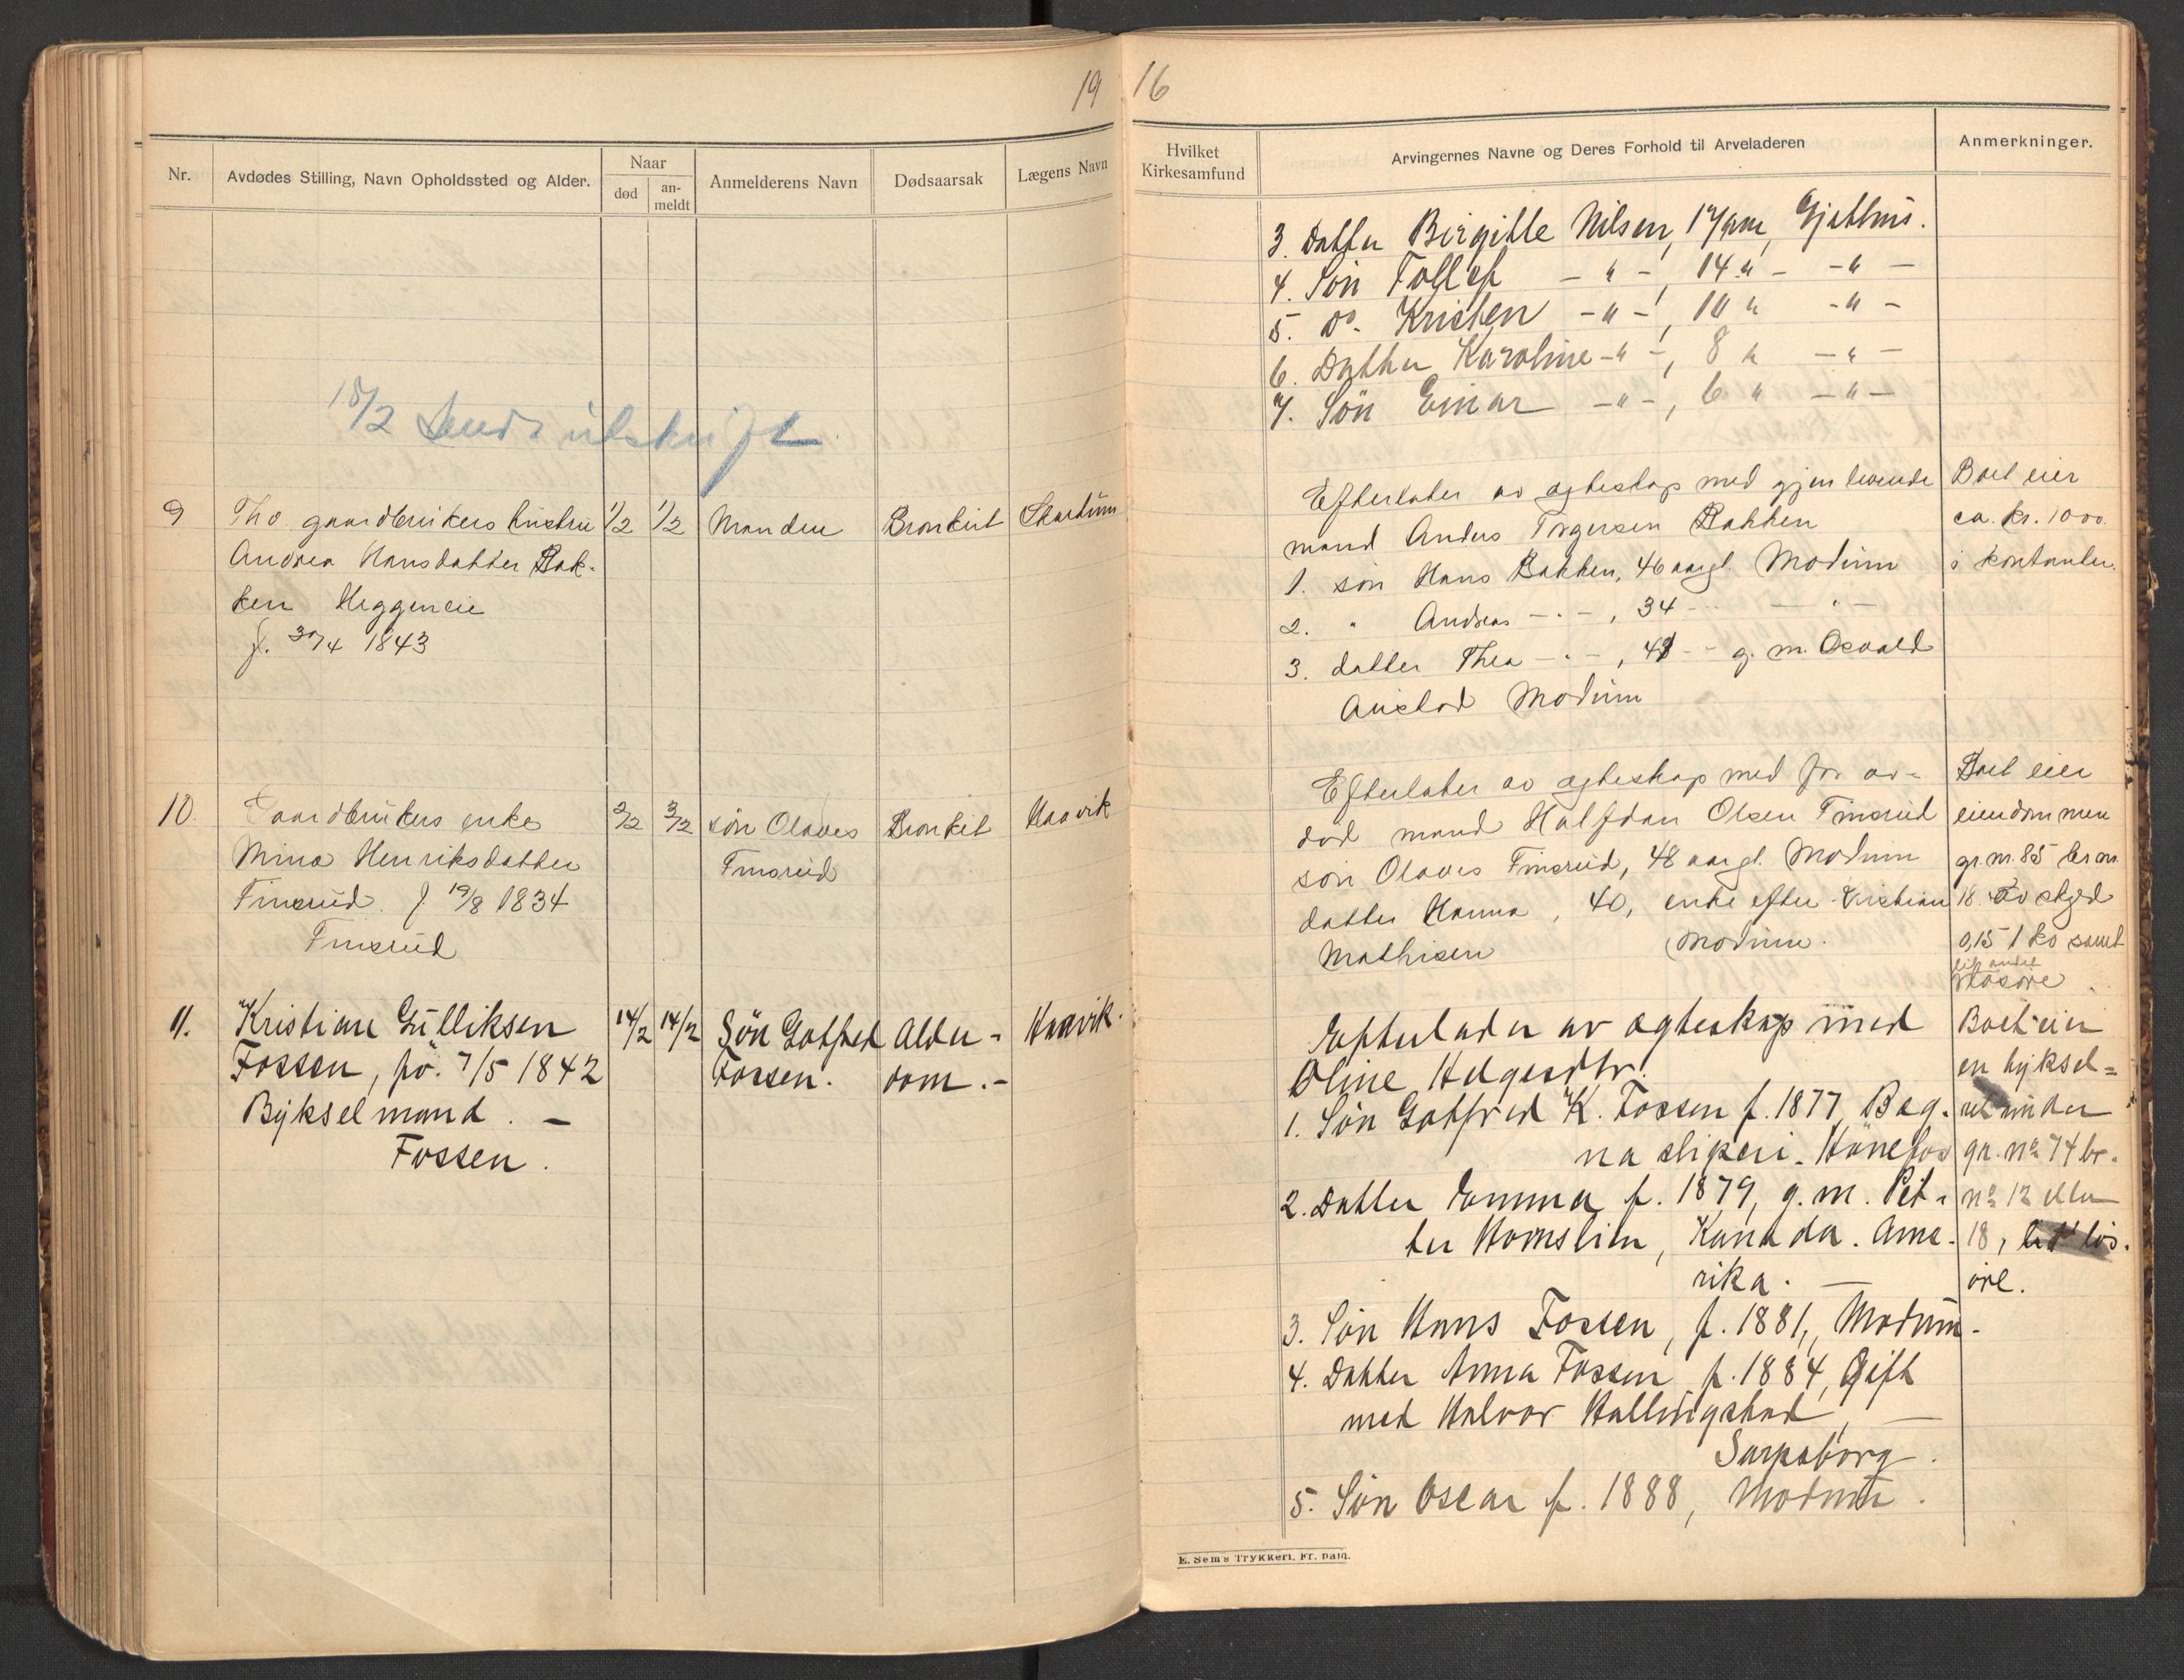 19
Nr.
Avdødes Stilling, Navn Opholdssted og Alder.
Naar
død
an-
meldt
Anmelderens Navn
Dødsaarsak
Lægens Navn
18/2 Sendt utskrift
9
gaardbrukers hustru
1/2
1/2
Manden
Bronkit
Skartum
Andrea Hansdatter Bak-
ken Heggeneie
f. 30/4 1843
10.
Gaardbrukers enke
2/2
3/2
søn Olaves
Bronkit
Haavik
Mina Henriksdatter
Finsrud
Finsrud. f. 19/8 1834
Finsrud
11.
Kristian Gulliksen
14/2
14/2
Søn Gotfred
Alder-
Haavik.
Fossen, fø. 7/5 1842
Fossen.
dom.-
Bykselmand. –
Fossen.
16
Hvilket
Kirkesamfund
Arvingernes Navne og Deres Forhold til Arveladeren
Anmerkninger.
3. Datter Birgitte Nilsen, 17 aar, Gjethus.
4. Søn Tollef – " –, 14 " – – " –
5. do. Kristen – " –, 10 " – " –
6. Datter Karoline – " –, 8 " – " –
7. Søn Einar – " –, 6 " – " –
Efterlater av egteskap med gjenlevende
mand Anders Torgersen Bakken
1. søn Hans Bakken, 46 aargl. Modum
2. " Andreas – " –, 34 – " –
3. datter Thea – " –, g. m. Osvald
Austad Modum
Boet eier
ca. kr. 1000.
i kontanter.
Efterlater av egteskap med før av-
død mand Halfdan Olsen Finsrud
søn Olaves Finsrud, 48 aar gl. Modum
datter Hanna, 40, enke efter Kristian
Mathisen Modum.
Boet eier
eiendommen
gr. nr. 85 br. nr.
18 av skyld
0,15 1 ko samt
litt andet
løsøre.
Efterlader av ægteskap med
Oline Helgesdtr.
1. Søn Gotfred K. Fossen f. 1877, Bag-
na sliperi. Hønefos
2. Datter Emma f. 1879, g. m. Pet-
ter Hornslien, Kanada. Ame-
rika. –
3. Søn Hans Fossen, f. 1881, Modum.
4. Datter Anna Fossen f. 1884, Gift
med Halvor Hallingstad, –
Sarpsborg.
5. Søn Oscar f. 1888, Modum.
Boet eier
en byksel=
ret under
gr. no 74 br.
no 12 eller
18, lidt løs.
øre.
E. Sem's Trykkeri, Fr. hald.